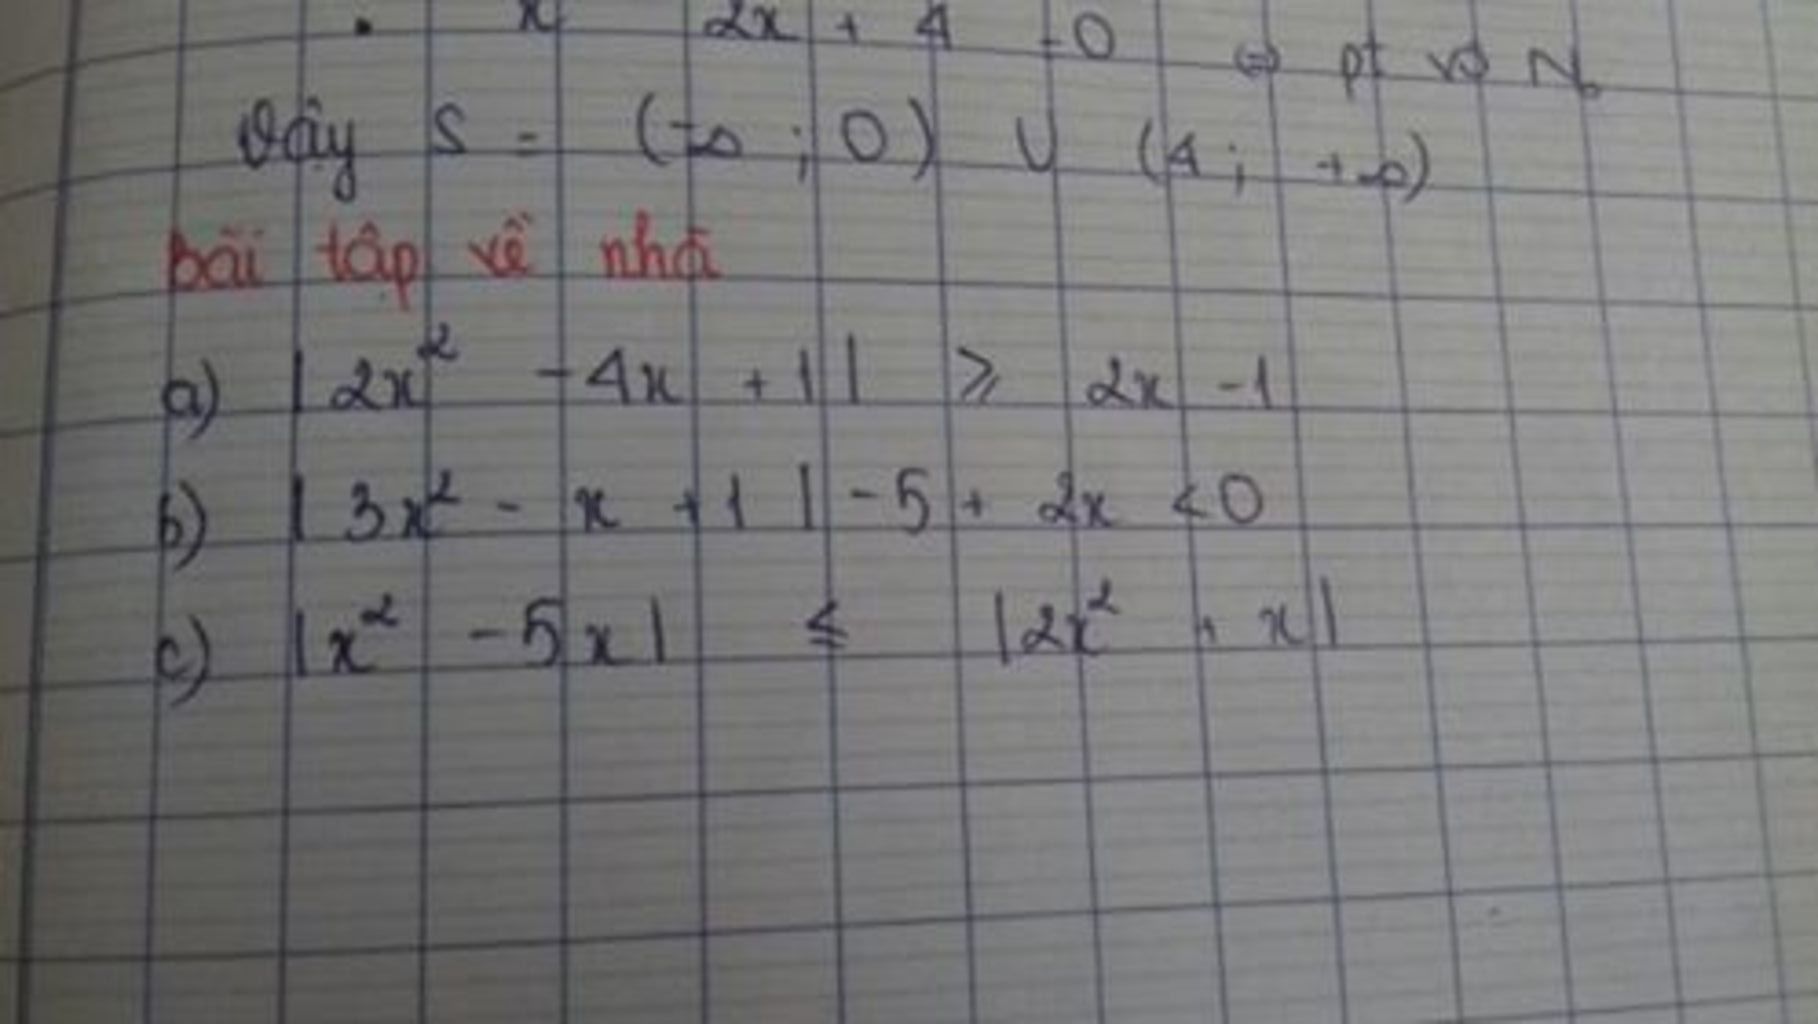 x 2x + 4 = 0 ⇔ pt vô N
Vậy S = (-∞ ; 0) ∪ (4 ; +∞)
bài tập về nhà
a) |2x² - 4x + 1| ≥ 2x - 1
b) |3x² - x + 1| - 5 + 2x < 0
c) |x² - 5x| ≤ |2x² + x|